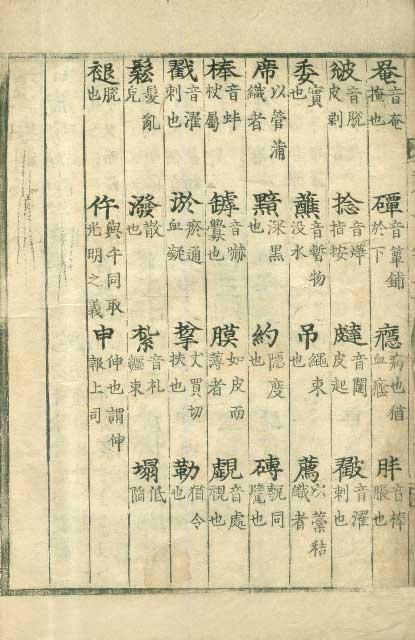 罨 音奄掩也 磹 音簟鋪於下 癮 病也猶血癊 胖 音棒脹也
音脫皮剥 捻 音燁指按 音闥皮起 音濯刺也
委 實也 蘸 音暫物没水 吊 繩束也 薦 以藁秸織者
席 以管蒲織者 黯 深黑也 約 隱度也 磚 甎同甓也
棒 音蚌杖屬 罅 音嚇釁也 膜 如皮而薄者 覷 音處視也
戳 音濯刺也 淤 瘀通血凝 丈買切扶也 勒 猶令也
鬆 髮亂皃 潑 散也 紮 音札纏束 塌 低陷
褪 脫也 仵 與午同取光明之義 申 伸也謂伸報上司